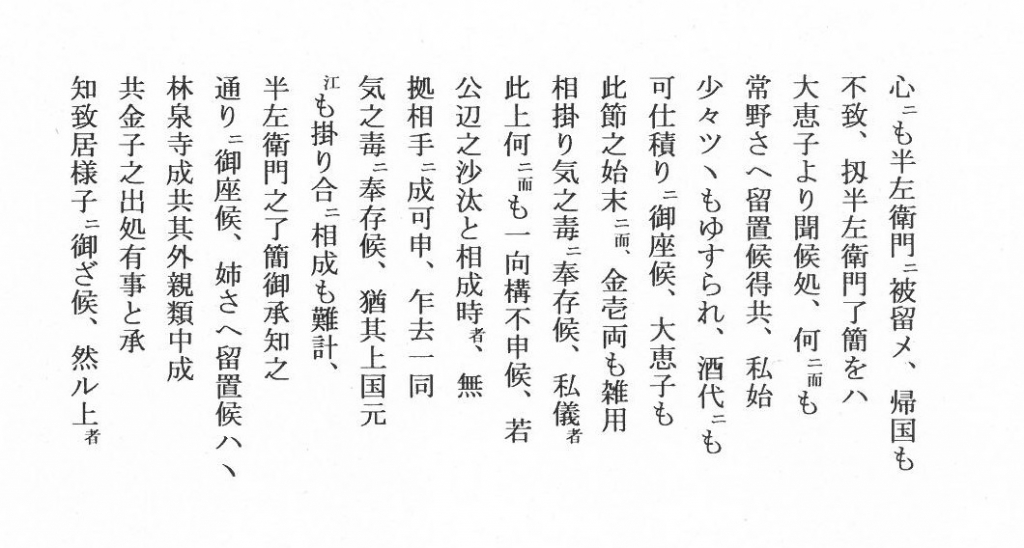 心ニも半左衛門ニ被留メ、帰国も
不致、扨半左衛門了簡をハ
大恵子より聞候処、何ニ而も
常野さへ留置候得共、私始
少々ツヽもゆすられ、酒代ニも
可仕積りニ御座候、大恵子も
此節之始末ニ而、金壱両も雑用
相掛り気之毒ニ奉存候、私儀者
此上何ニ而も一向構不申候、若
公辺之沙汰と相成時者、無
拠相手ニ成可申、乍去一同
気之毒ニ奉存候、猶其上国元
江も掛り合ニ相成も難計、
半左衛門之了簡御承知之
通りニ御座候、姉さへ留置候ハヽ
林泉寺成共其外親類中成
共金子之出処有事と承
知致居様子ニ御ざ候、然ル上者